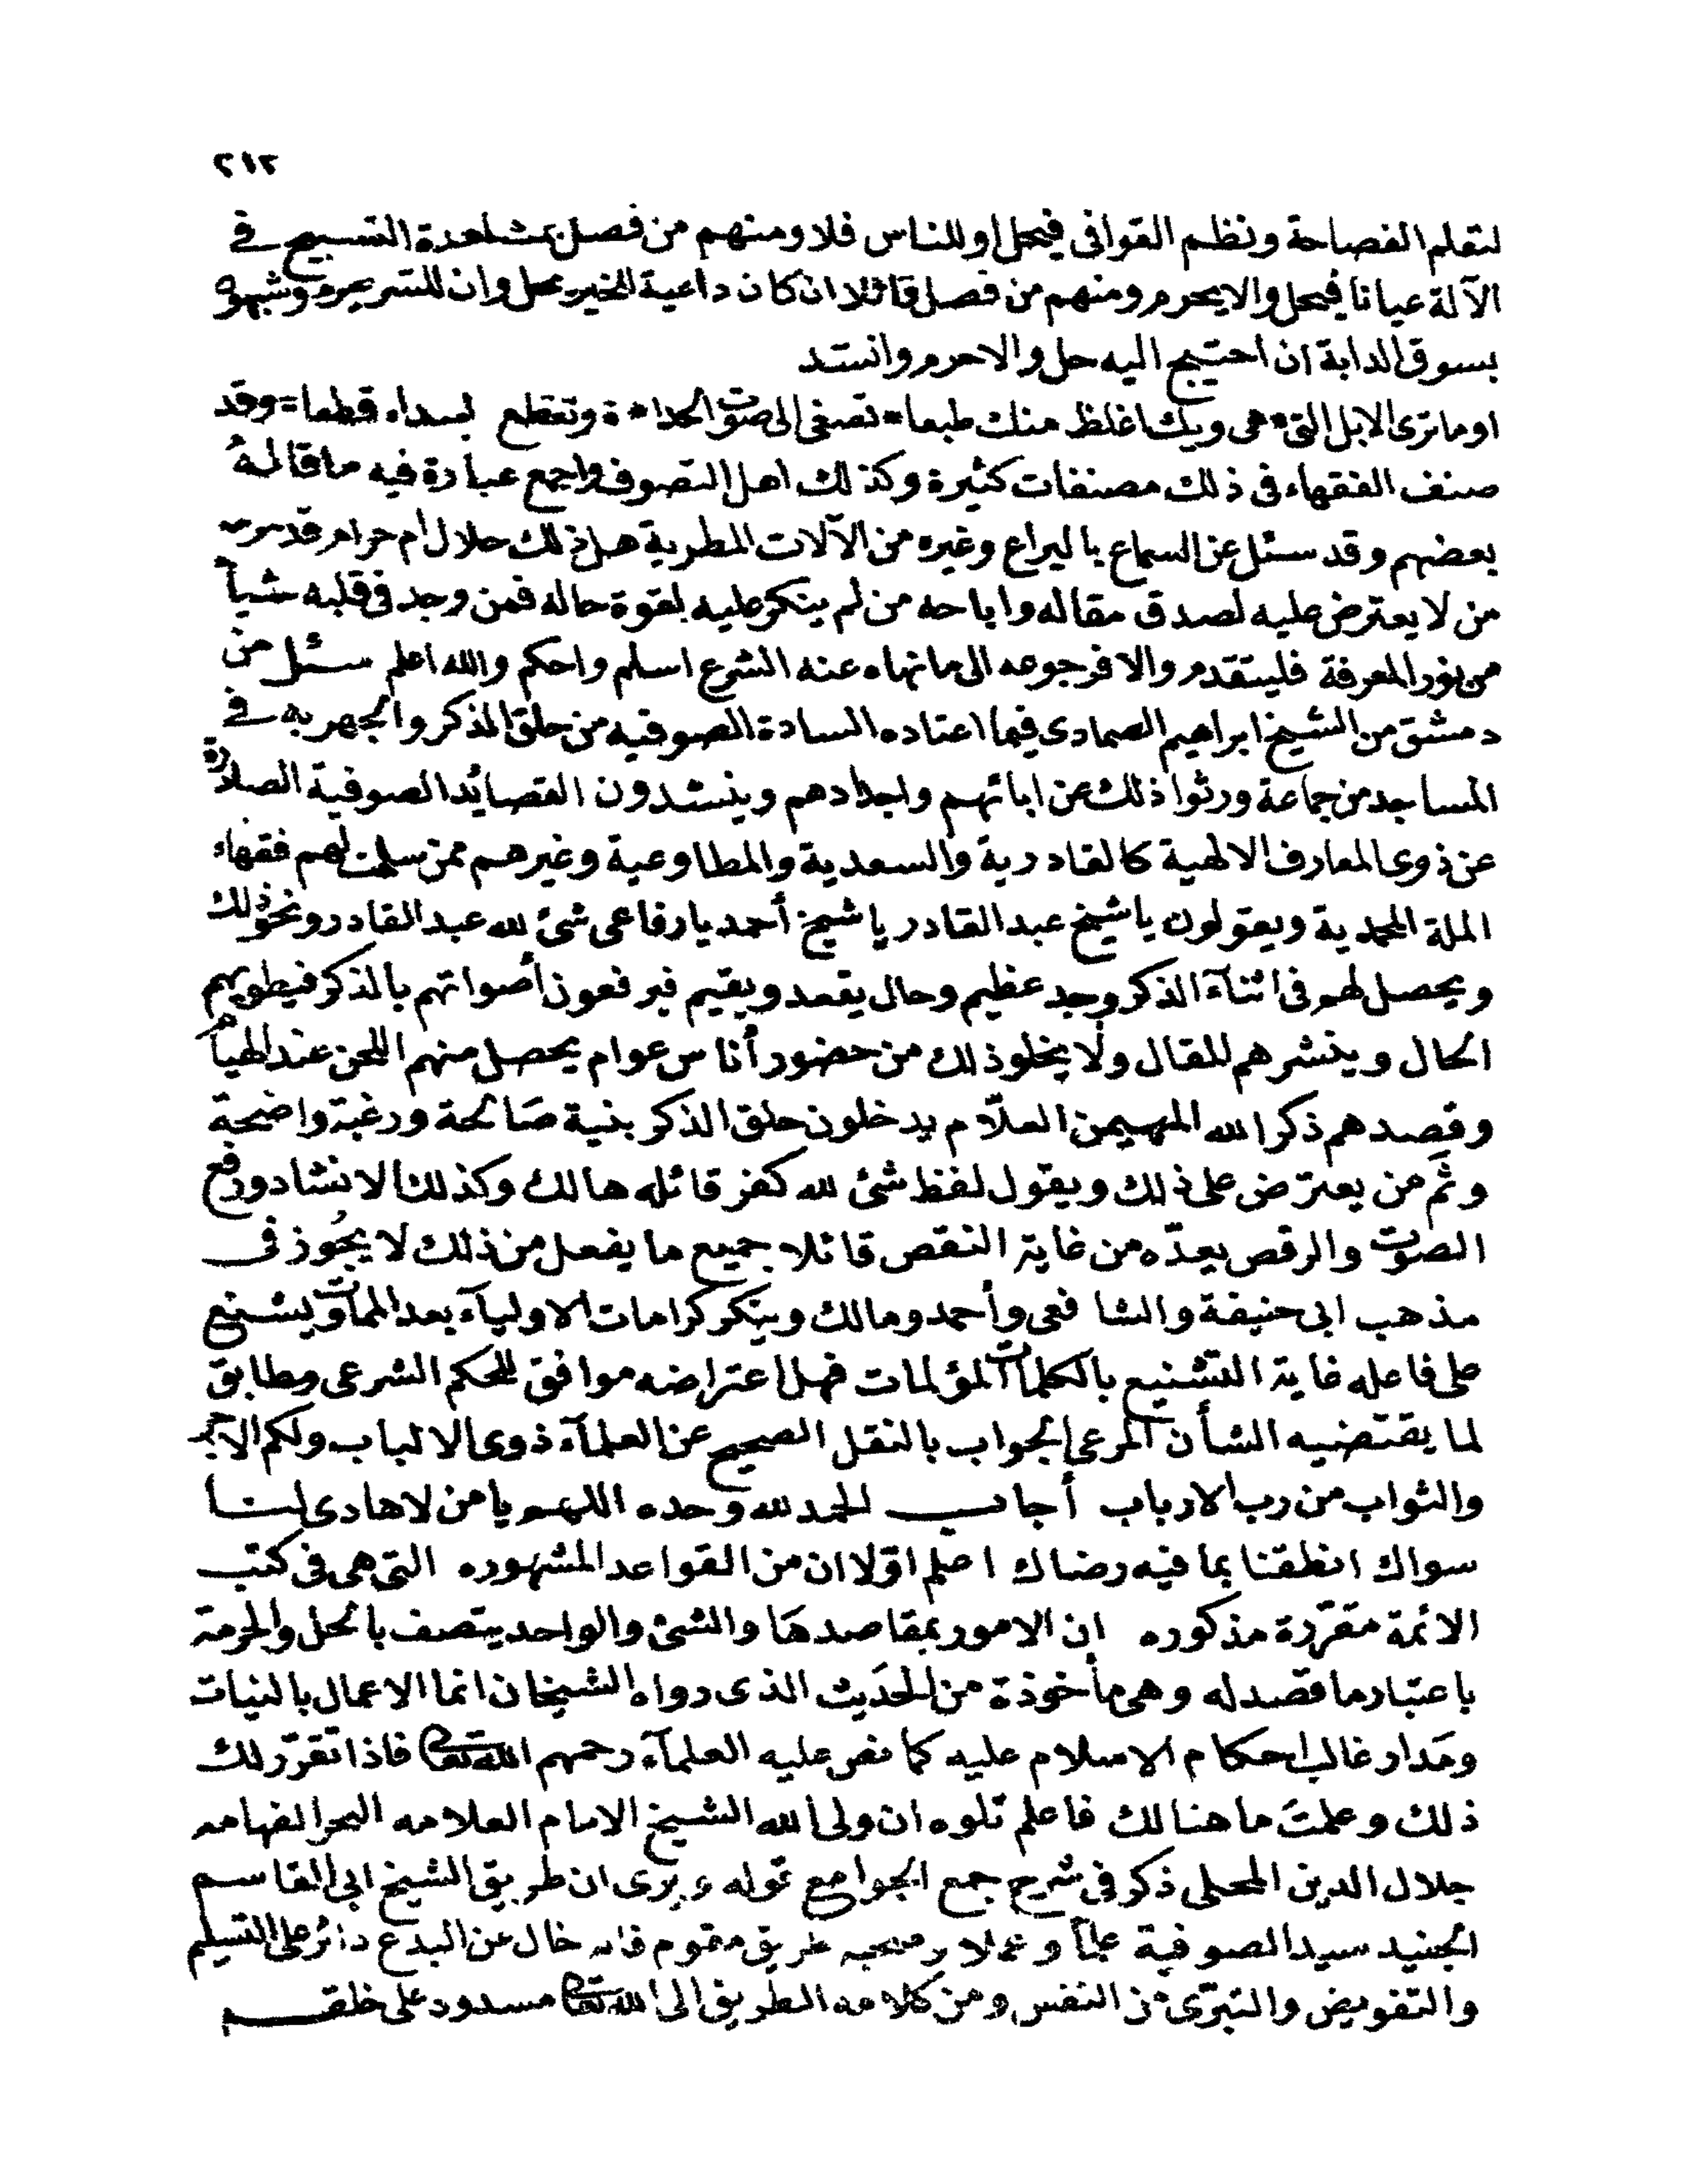 ٢١٢
لتعلم الفصاحة ونظم القوافى فيحل او للناس فلا ومنهم من فصل بمشاهدة التسبيح فى
الآلة عيانا فيحل والا يحرم ومنهم من فصل قائلا ان كان داعية للخير يحل وان للشر يحرم وشبهوه
بسوق الدابة ان احتيج اليه حل والا حرم وانشد
اوما ترى الابل التى * هى ويك اغلظ منك طبعا * تصغى الى صوت الحداة * وتقطع البيداء قطعا = وقد
صنف الفقهاء فى ذلك مصنفات كثيرة وكذلك اهل التصوف واجمع عبارة فيه ما قاله
بعضهم وقد سئل عن السماع باليراع وغيره من الآلات المطربة هل ذلك حلال أم حرام قد حرمه
من لا يعترض عليه لصدق مقاله واباحه من لم ينكر عليه لقوة حاله فمن وجد فى قلبه شيأ
من نور المعرفة فليتقدم والا فرجوعه الى ما نهاه عنه الشرع اسلم واحكم والله اعلم سئل من
دمشق من الشيخ ابراهيم الصمادى فيما اعتاده السادة الصوفيه من حلق الذكر والجهر به فى
المساجد من جماعة ورثوا ذلك عن ابائهم واجدادهم وينشدون القصائد الصوفية الصادرة
عن ذوى المعارف الالهية كالقادرية والسعدية والمطاوعية وغيرهم ممن سلمت لهم فقهاء
الملة المحمدية ويقولون يا شيخ عبد القادر يا شيخ أحمد يا رفاعى شئ لله عبد القادر ونحو ذلك
ويحصل لهم فى اثنآء الذكر وجد عظيم وحال يقعد ويقيم فيرفعون أصواتهم بالذكر فيطويهم
الحال وينشرهم للمقال ولا يخلو ذلك من حضور أناس عوام يحصل منهم اللحن عند الهيام
وقصدهم ذكر الله المهيمن العلّام يدخلون حلق الذكر بنية صَالحة ورغبة واضحة
وثَم من يعترض على ذلك ويقول لفظ شئ لله كفر قائله هالك وكذلك الانشاد ورفع
الصوت والرقص يعدّه من غاية النقص قائلا جميع ما يفعل من ذلك لا يجُوز فى
مذهب ابى حنيفة والشافعى وأحمد ومالك وينكر كرامات الاوليآء بعد الممات ويشنع
على فاعله غاية التشنيع بالكلمات المؤلمات فهل اعتراضه موافق للحكم الشرعى ومطابق
لما يقتضيه الشأن المرعى الجواب بالنقل الصحيح عن العلمآء ذوى الالباب ولكم الاجر
والثواب من رب الارباب أجاب الحمد لله وحده اللهم يا من لا هادى لنا
سواك انطقنا بما فيه رضاك اعلم اوّلا ان من القواعد المشهوره التى هى فى كتب
الائمة مقرّرة مذكوره ان الامور بمقاصدهَا والشئ والواحد يتصف بالحل والحرمة
باعتبار ما قصد له وهى مأخوذة من الحَديث الذى رواه الشيخان انما الاعمال بالنيات
ومَدار غالب احكام الاسلام عليه كما نص عليه العلمآء رحمهم الله تعالى فاذا تقرّر لك
ذلك وعلمتَ ما هنالك فاعلم تلوه ان ولى الله الشيخ الامام العلامه البحر الفهامه
جلال الدين المحلى ذكر فى شرح جمع الجوامع قوله ويرى ان طريق الشيخ ابى القاسم
الجنيد سيد الصوفية علمأ وعملا وصحبه طريق مقوم فانه خال عن البدع دائر على التسليم
والتفويض والتبرّى من النفس ومن كلامه الطريق الى الله تعالى مسدود على خلقه